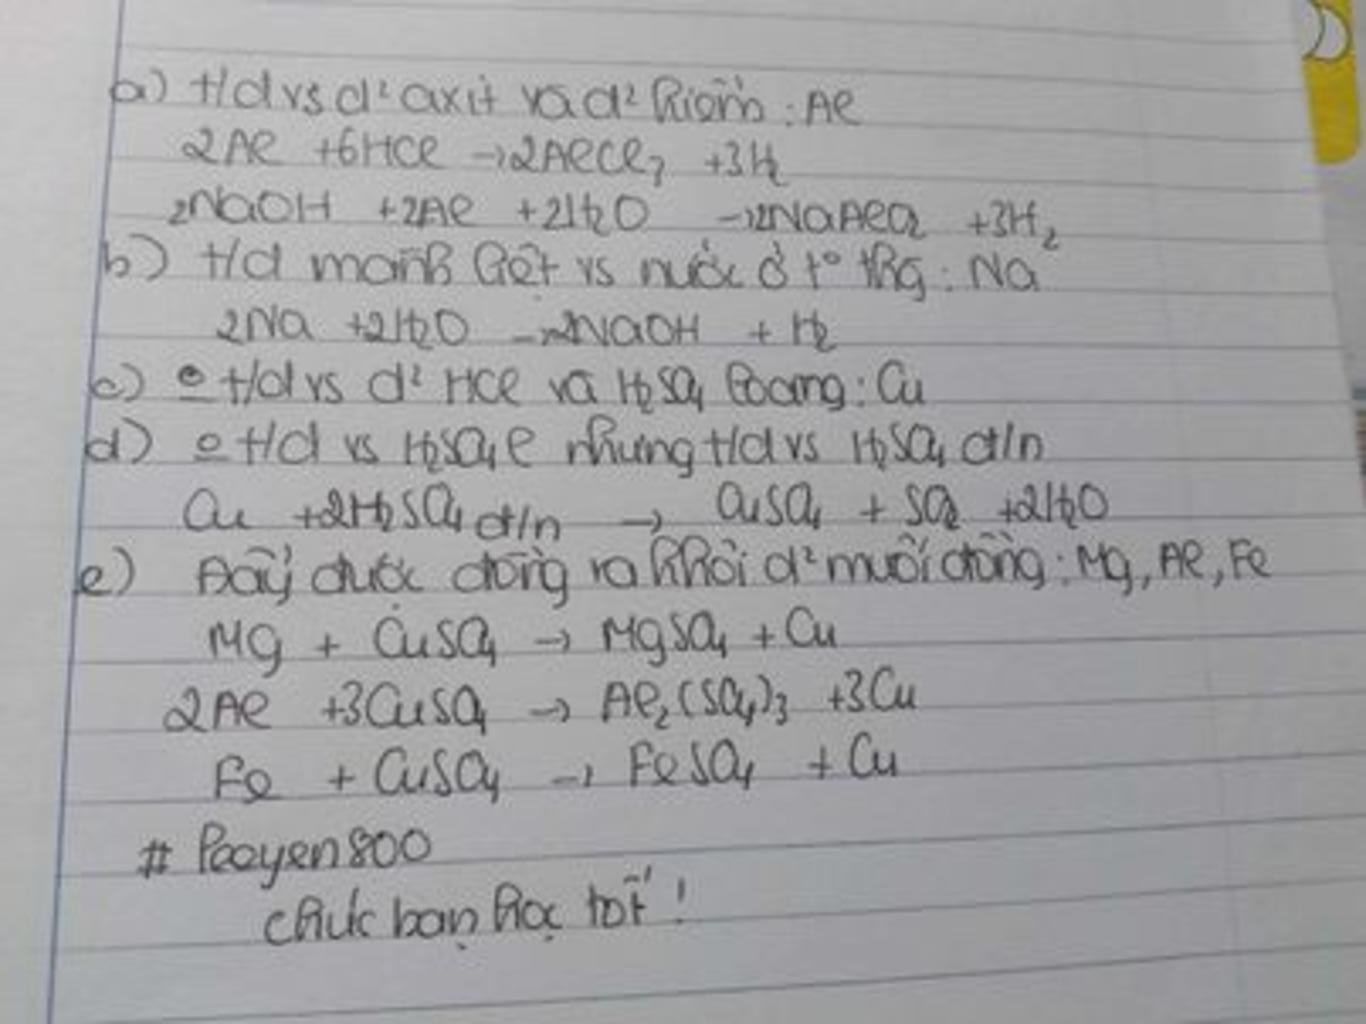 a) t/d vs d² axit và d² kiềm : Al
2Al +6HCl → 2AlCl₃ +3H₂
2NaOH +2Al +2H₂O → 2NaAlO₂ +3H₂
b) t/d mãnh liệt vs nước ở t° thg : Na
2Na +2H₂O → 2NaOH + H₂
c) o t/d vs d² HCl và H₂SO₄ loang : Cu
d) o t/d vs H₂SO₄ l nhưng t/d vs H₂SO₄ đ/n
Cu +2H₂SO₄ đ/n → CuSO₄ + SO₂ +2H₂O
e) Đẩy được đồng ra khỏi d² muối đồng : Mg, Al, Fe
Mg + CuSO₄ → MgSO₄ + Cu
2Al +3CuSO₄ → Al₂(SO₄)₃ +3Cu
Fe + CuSO₄ → FeSO₄ + Cu
#
chúc bạn học tốt !